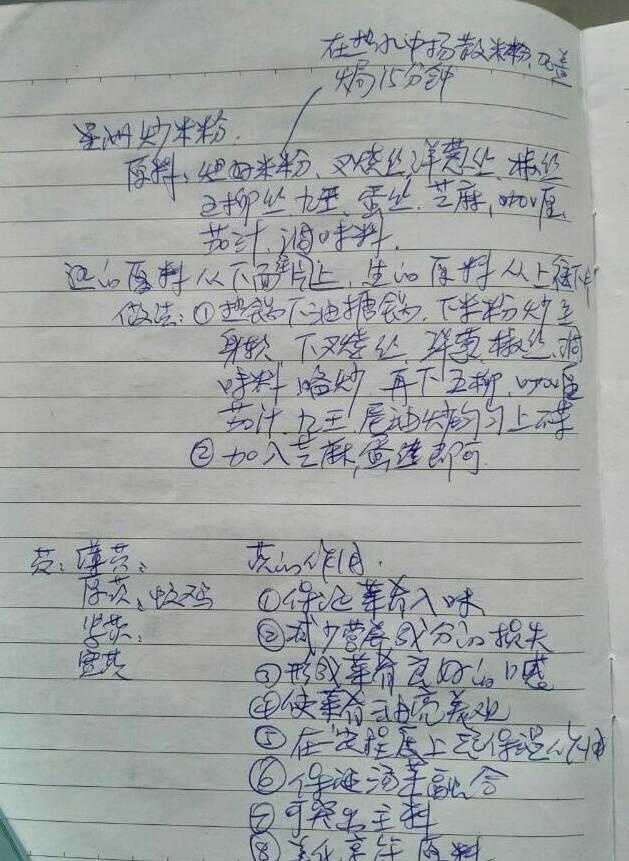 在热水中扬散米粉,沉盖
焗15分钟
星洲炒米粉.
原料:焗好米粉、叉烧丝、洋葱丝、椒丝
五柳丝、九王、蛋丝、芝麻、咖喱
茄汁、调味料.
的原料从下面 上,生的原料从上往下
做法:①热锅下油搪锅.下米粉炒至
身软 下叉烧丝、洋葱、椒丝、调
味料略炒 再下五柳,咖喱
茄汁、九王、尾油炒均匀上碟
②加入芝麻,蛋丝即可.
芡:薄芡: 芡的作用.
厚芡:
①保证菜肴入味
紧芡: ②减少营养成分的损失
宽芡 ③形成菜肴良好的口感
④使菜肴油亮美观
⑤在定程度上起保温作用
⑥保证汤菜融合
⑦可突出主料
⑧美化 原料